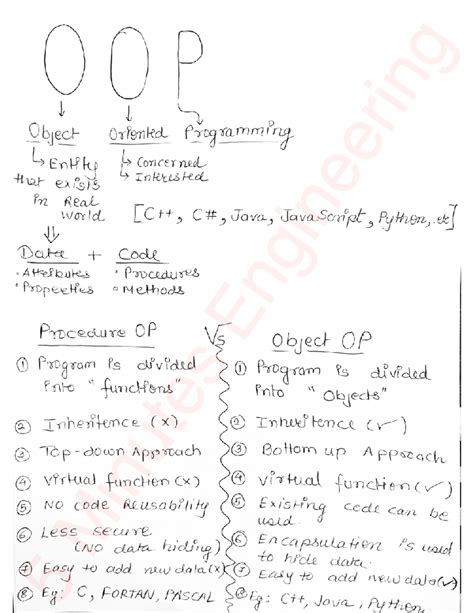 OOP
Object Oriented Programming
↳ Entity
that exists
in Real
world
↳ Concerned
↳ Interested
[C++, C#, Java, JavaScript, Python,. etc]
Data + Code
• Attributes
• Properties
• Procedures
• Methods
Procedure OP Vs Object OP
① Program is divided
into "functions"
② Inheritence (x)
③ Top-down Approach
④ Virtual function (x)
⑤ No code Reusability
⑥ Less secure
(No data hiding)
⑦ Easy to add new data (x)
⑧ Eg: C, FORTAN, PASCAL
① Program is divided
into "Objects"
② Inheritence (✓)
③ Bottom up Approach
④ Virtual function (✓)
⑤ Existing code can be
used.
⑥ Encapsulation is used
to hide data.
⑦ Easy to add new data (✓)
⑧ Eg: C++, Java, Python
5 Minutes Engineering